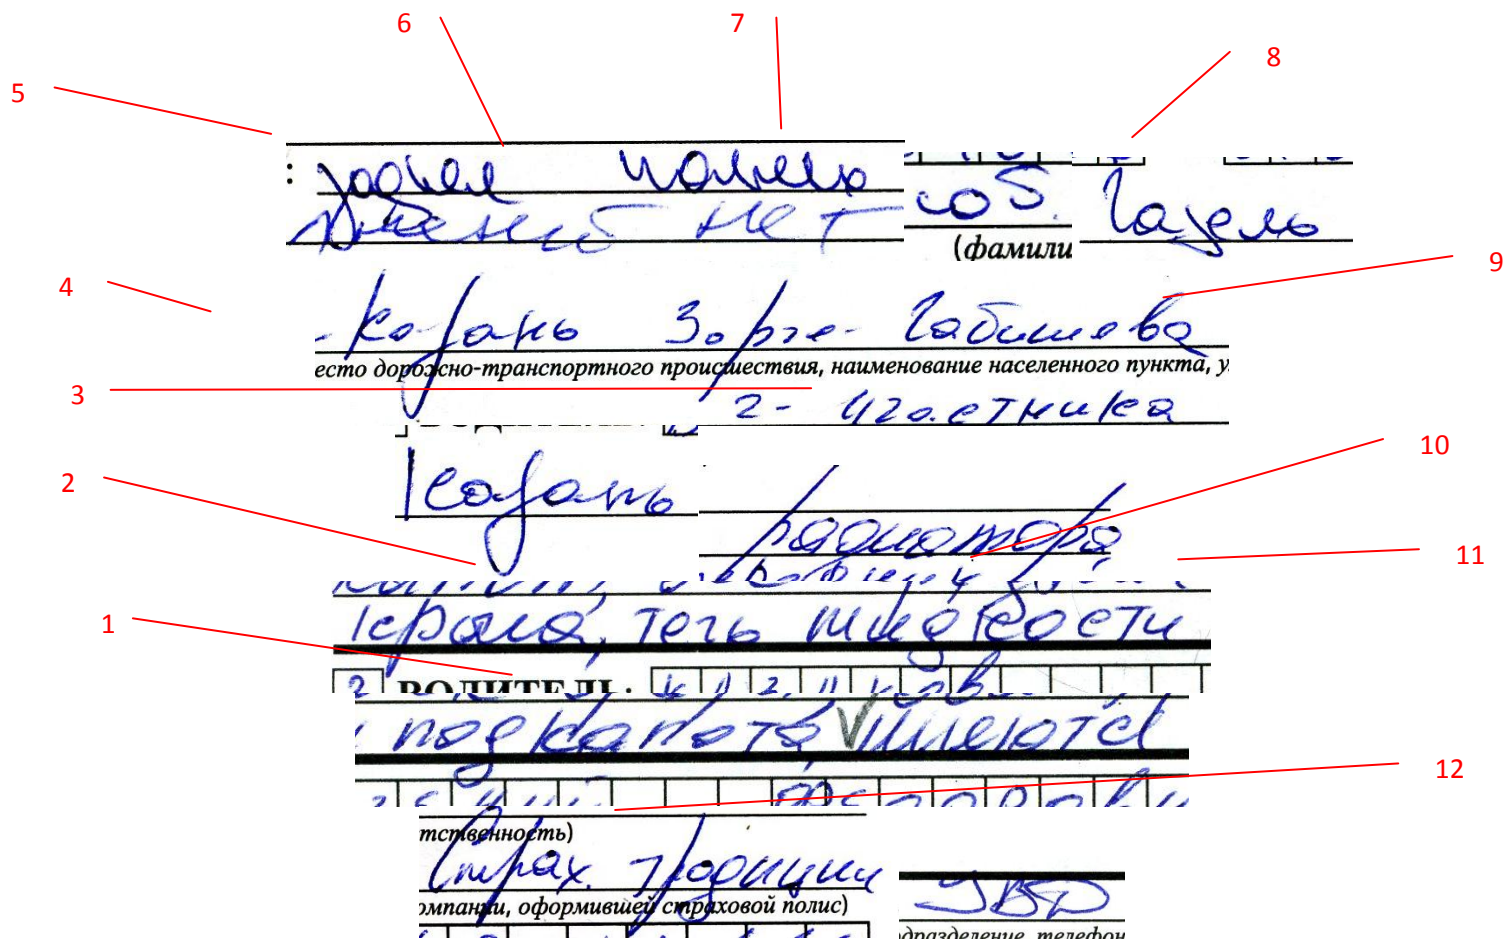 6
7
8
5
: заднее колесо
жений нет
соб. Газель
(фамили
9
4
- Казань Зорге - Габишева
есто дорожно-транспортного происшествия, наименование населенного пункта, у
3
2 - участника
10
2
Казань
радиатора
11
1
крыла, течь жидкости
2 ВОДИТЕЛЬ:
под капота имеются
12
тственность)
Страх. традиции
УВД
омпании, оформившей страховой полис)
дразделение, телефон